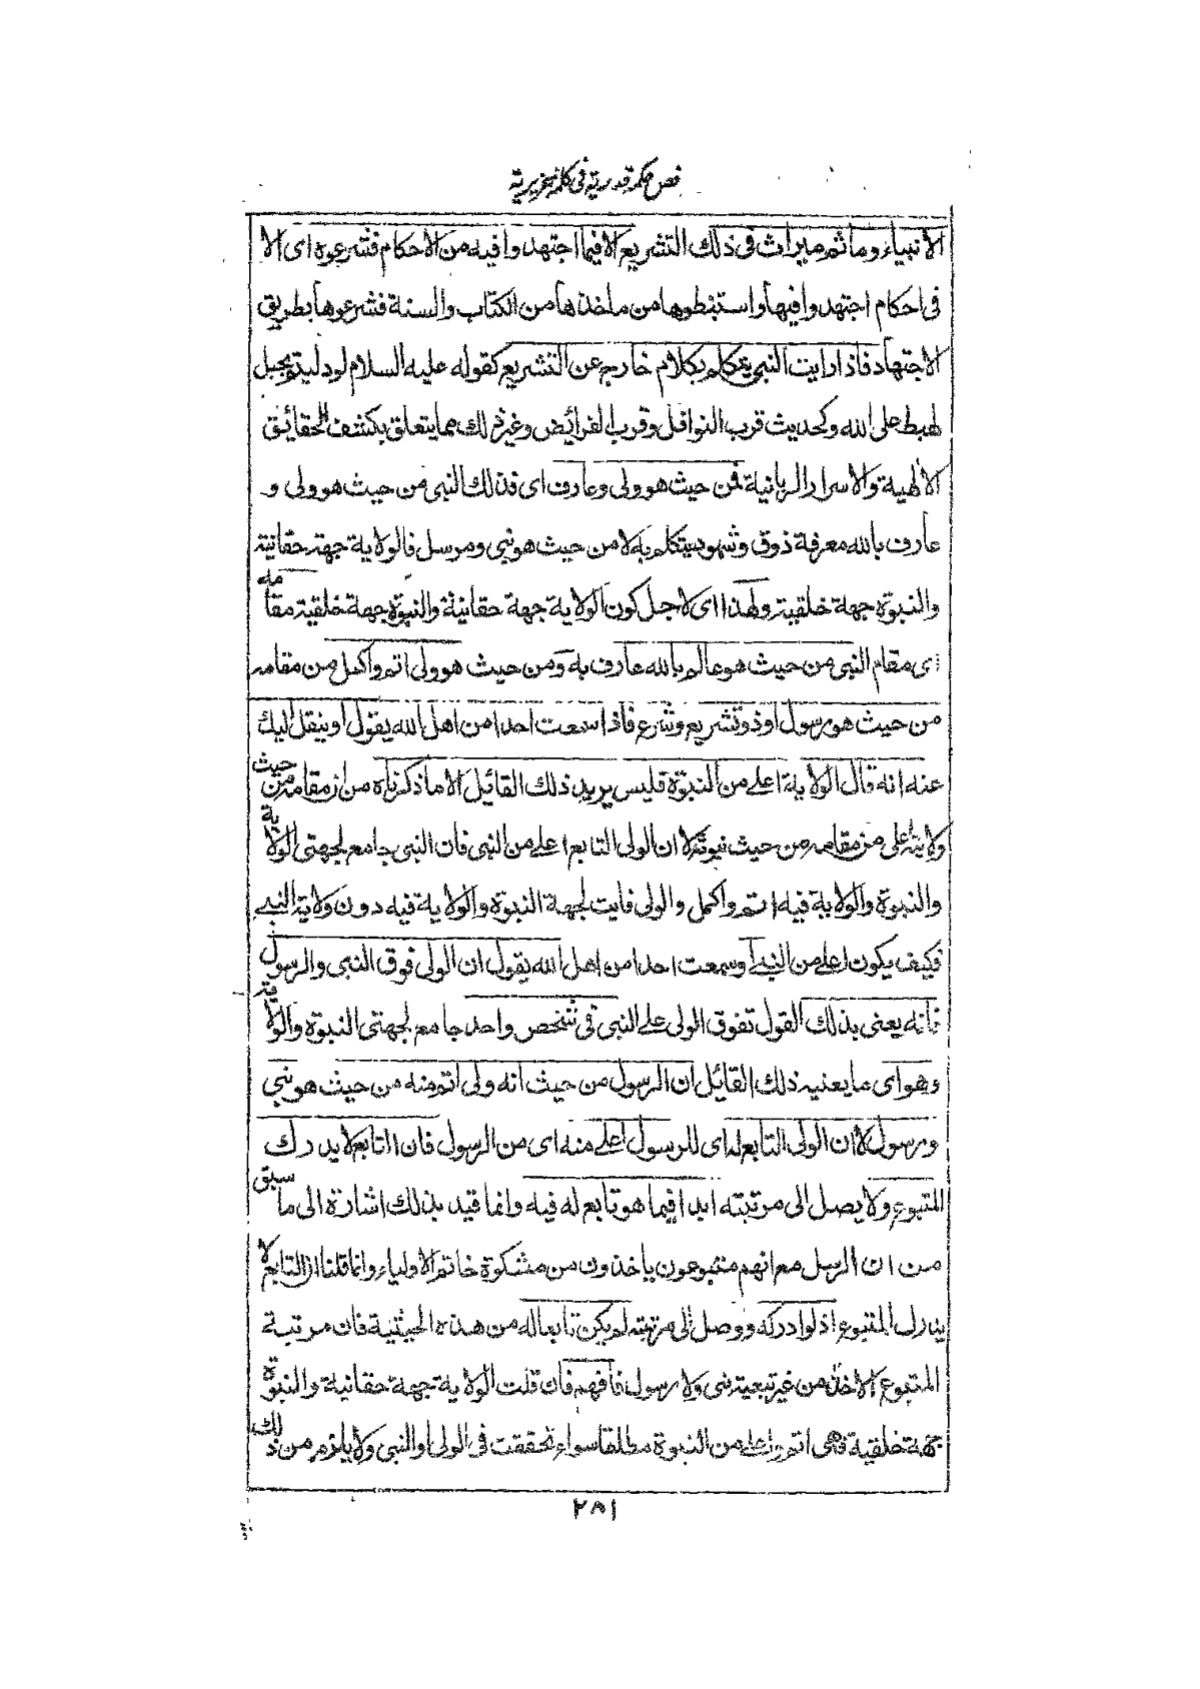 فص حكمة قدرية في كلمة عزيرية
الانبياء وما ثم ميراث في ذلك التشريع الا فيما اجتهدوا فيه من الاحكام فشرعوه اى الا
في احكام اجتهدوا فيها واستنبطوها من ماخذها من الكتاب والسنة فشرعوها بطريق
الاجتهاد فاذا رايت النبي يتكلم بكلام خارج عن التشريع كقوله عليه السلام لو دليتم بحبل
لهبط على الله وكحديث قرب النوافل وقرب الفرائض وغير ذلك مما يتعلق بكشف الحقائق
الالهية والاسرار الربانية فمن حيث هو ولى وعارف اى فذلك النبي من حيث هو ولى و
عارف بالله معرفة ذوق وشهود يتكلم به لا من حيث هو نبي ومرسل فالولاية جهة حقانية
والنبوة جهة خلقية ولهذا اى لاجل كون الولاية جهة حقانية والنبوة جهة خلقية مقامه
اى مقام النبي من حيث هو عالم بالله عارف به ومن حيث هو ولى اتم واكمل من مقامه
من حيث هو رسول او ذو تشريع وشرع فاذا سمعت احدا من اهل الله يقول او ينقل اليك
عنه انه قال الولاية اعلى من النبوة فليس يريد ذلك القائل الا ما ذكرناه من ان مقامه من حيث
ولايته اعلى من مقامه من حيث نبوته لا ان الولى التابع اعلى من النبي فان النبي جامع لجهتي الولاية
والنبوة والولاية فيه اتم واكمل والولى فايت لجهة النبوة والولاية فيه دون ولاية النبي
فكيف يكون اعلى من النبي او سمعت احدا من اهل الله يقول ان الولى فوق النبي والرسول
فانه يعنى بذلك القول تفوق الولى على النبي في شخص واحد جامع لجهتي النبوة والولاية
وهو اى ما يعنيه ذلك القائل ان الرسول من حيث انه ولى اتم منه من حيث هو نبي
ورسول لا ان الولى التابع له اى للرسول اعلى منه اى من الرسول فان التابع لا يدرك
المتبوع ولا يصل الى مرتبته ابدا فيما هو تابع له فيه وانما قيد بذلك اشارة الى ما سبق
من ان الرسل مع انهم متبوعون ياخذون من مشكوة خاتم الاولياء وانما قلنا ان التابع لا
يدرك المتبوع اذ لو ادركه ووصل الى مرتبته لم يكن تابعا له من هذه الحيثية فان مرتبة
المتبوع الاخذ من غير تبعية نبي ولا رسول فافهم فان قلت الولاية جهة حقانية والنبوة
جهة خلقية فهى اتم واعلى من النبوة مطلقا سواء تحققت في الولى او النبي ولا يلزم من ذلك
٢٨١